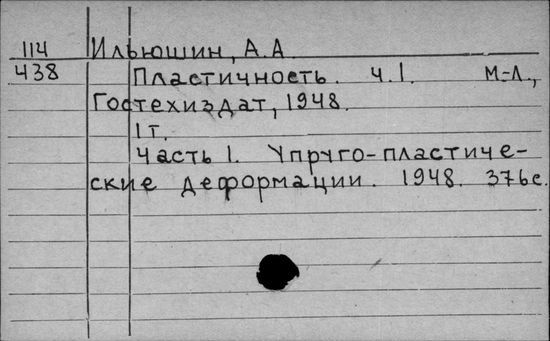 114 Ильюшин, А.А
438 Пластичность. ч.1. М.-Л.,
Гостехиздат, 1948.
1т.
Часть 1. Упруго-пластиче-
ские деформации. 1948. 376с.